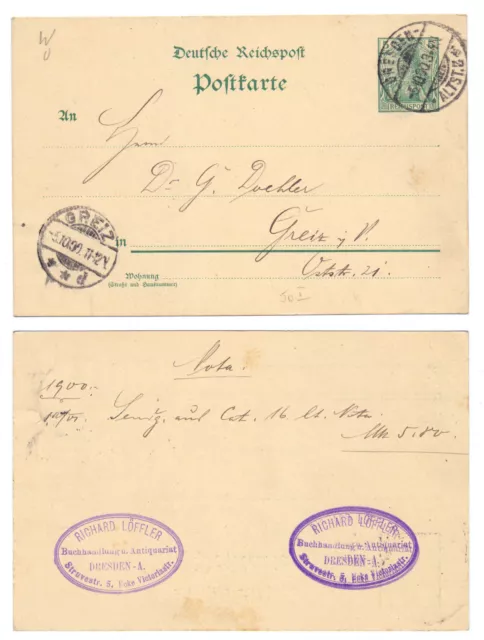 Deutsche Reichspost
Postkarte
An
Herrn
Dr G. Doehler
in Greiz i/V.
Oststr. 21.
Wohnung
(Straße und Hausnummer)
DRESDEN-
ALTST.
GREIZ
5.10.00. 11-12V.
Nota.
1900.-
Sendg. aut Cat. 16 lt. Nota
Mk 5.80.
RICHARD LÖFFLER
Buchhandlung u. Antiquariat
DRESDEN-A.
Struvestr. 5, Ecke Victoriastr.
RICHARD LÖFFLER
Buchhandlung u. Antiquariat
DRESDEN-A.
Struvestr. 5, Ecke Victoriastr.